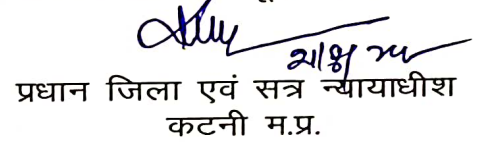 प्रधान जिला एवं सत्र न्यायाधीश
कटनी म.प्र.